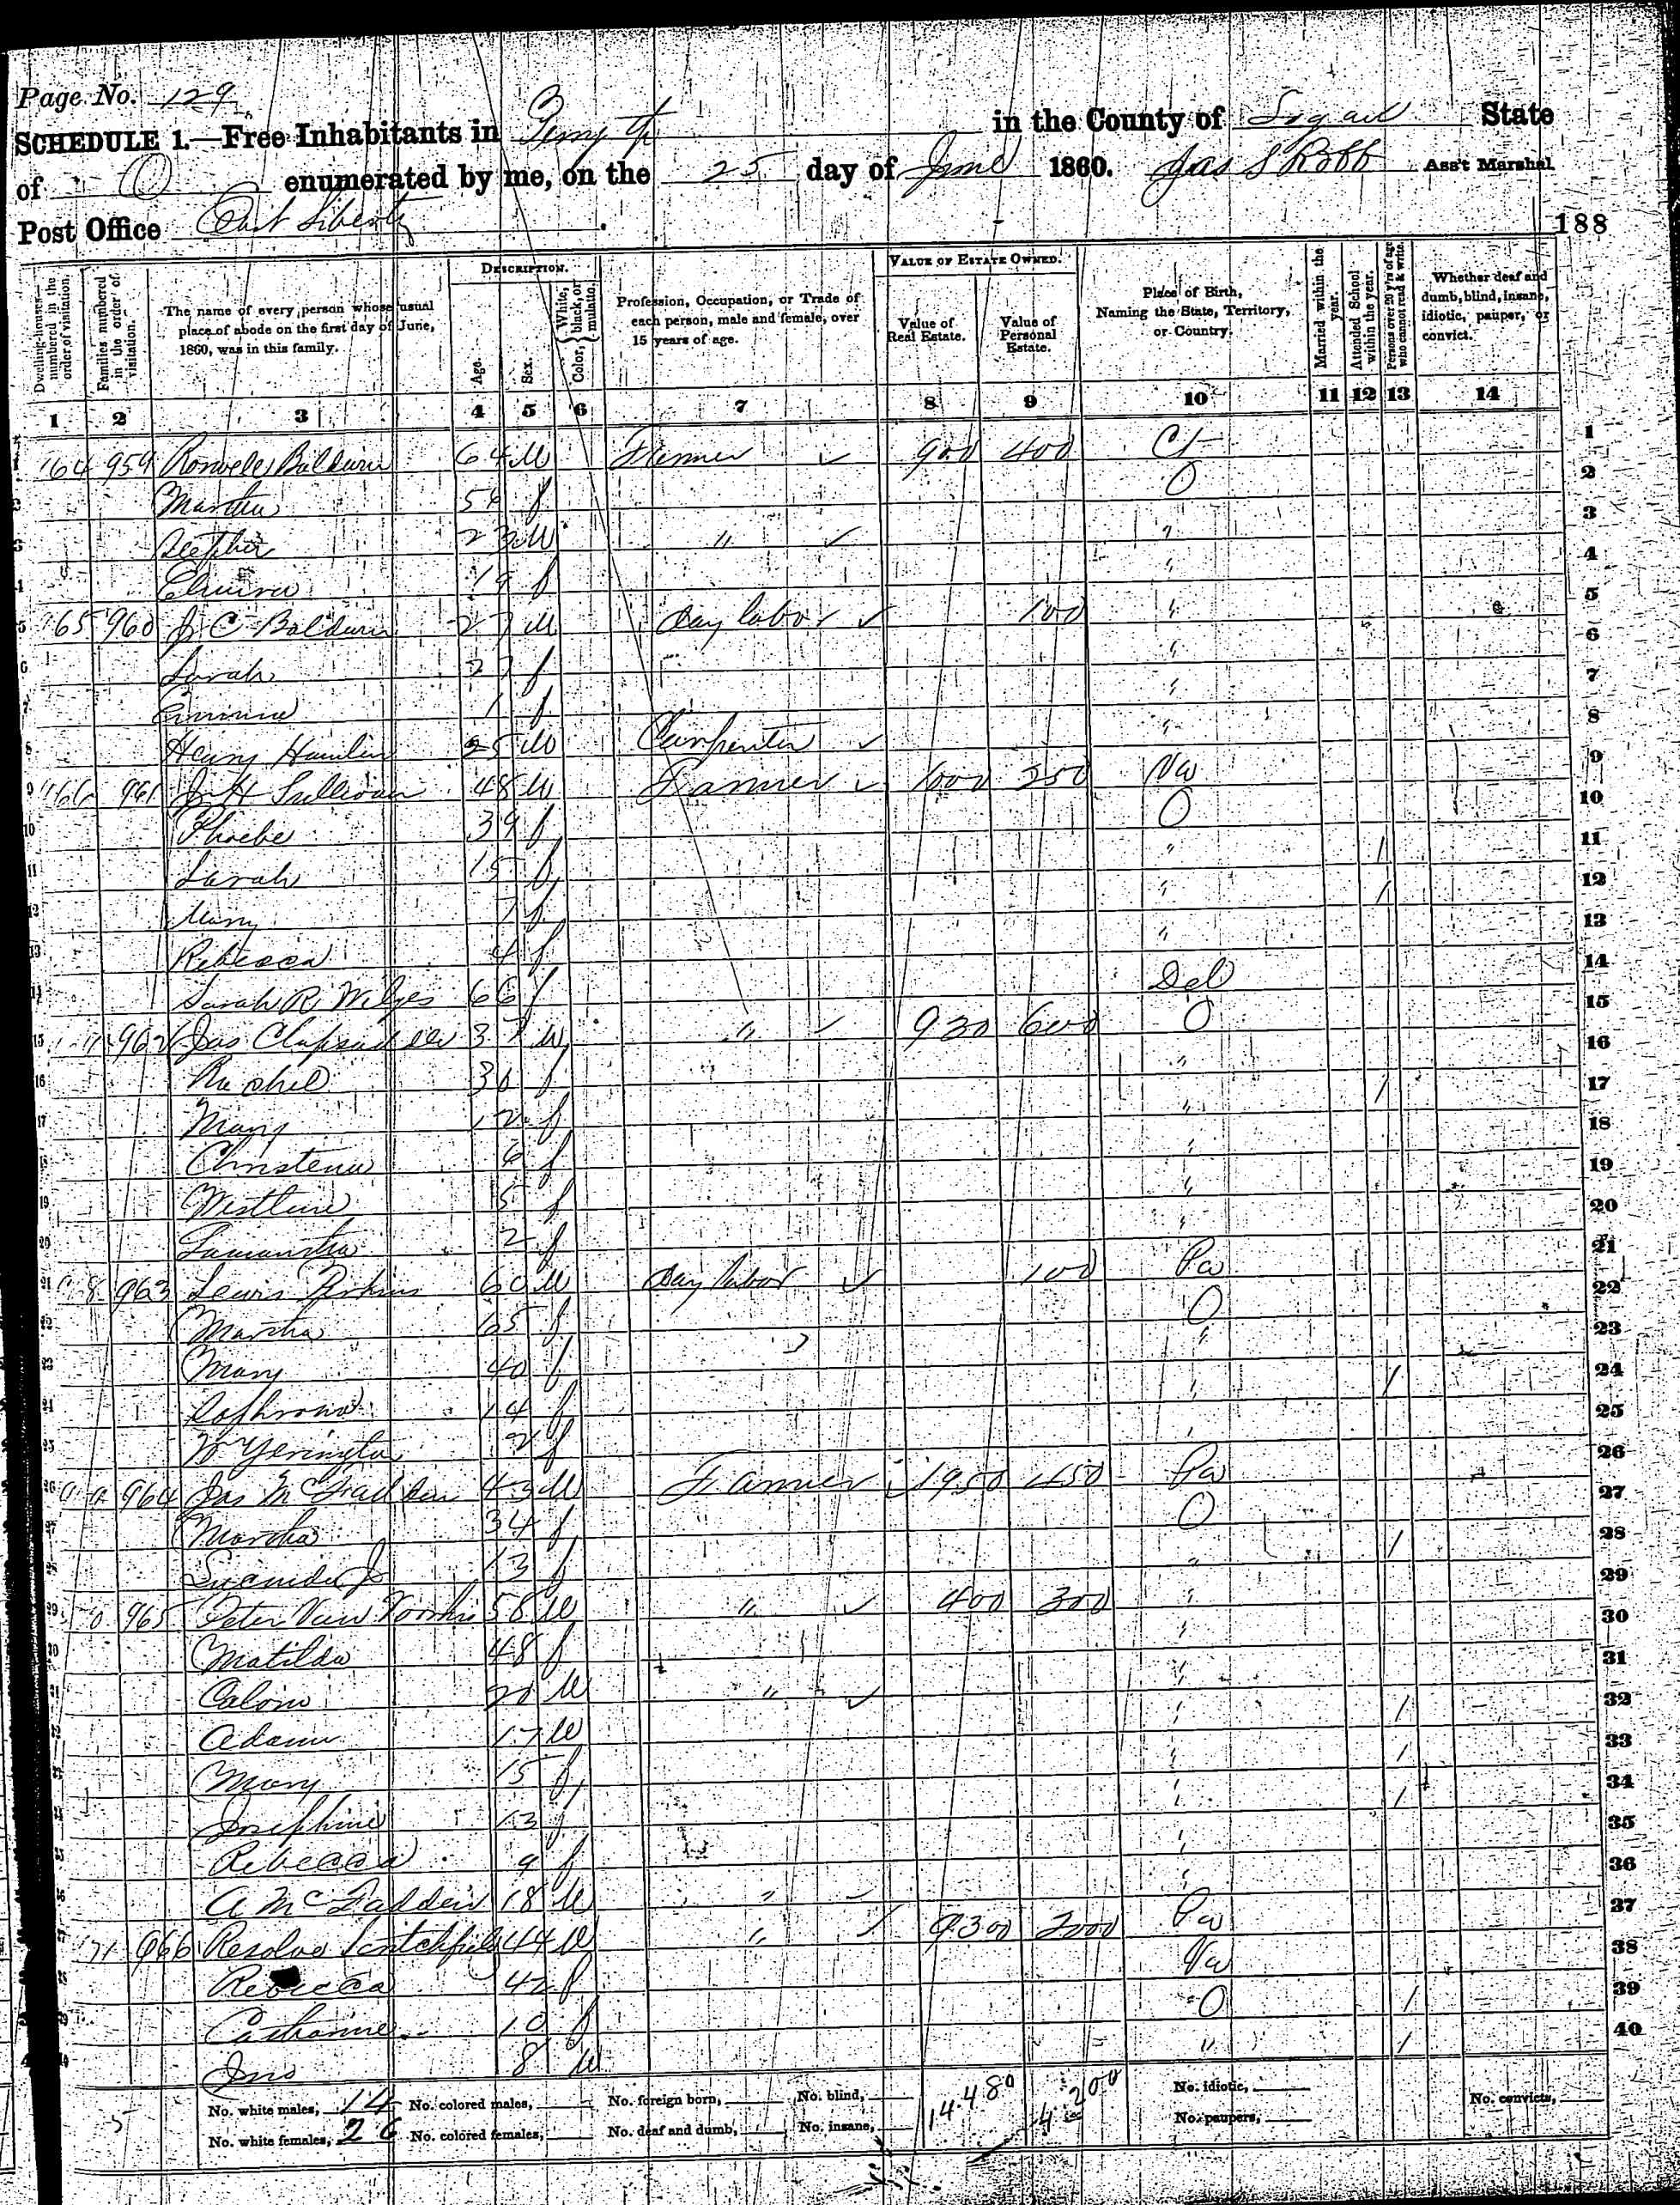 Page No. 129
SCHEDULE 1.—Free Inhabitants in Perry Tp in the County of Logan State
of O enumerated by me, on the 25 day of June 1860. Jas S Robb Ass't Marshal
Post Office East Liberty
188
DESCRIPTION. VALUE OF ESTATE OWNED.
Dwelling-houses—numbered in the order of visitation. Families numbered in the order of visitation. The name of every person whose usual place of abode on the first day of June, 1860, was in this family. Age. Sex. Color, { White, black, or mulatto. Profession, Occupation, or Trade of each person, male and female, over 15 years of age. Value of Real Estate. Value of Personal Estate. Place of Birth, Naming the State, Territory, or Country. Married within the year. Attended School within the year. Persons over 20 y'rs of age who cannot read & write. Whether deaf and dumb, blind, insane, idiotic, pauper, or convict.
1 2 3 4 5 6 7 8 9 10 11 12 13 14
964 959 Baldwin 64 M Farmer 900 400 Ct 1
Martha 54 f O 2
23 M " " 3
19 f " 4
965 960 J C Baldwin 27 M day labor 100 " 5
Sarah 27 f " 6
1 f " 7
Henry Hamlin 25 M Carpenter " 8
966 961 Sullivan 48 M Farmer 1000 250 Va 9
Phoebe 39 f O 10
Sarah 15 f " / 11
Mary 7 f " / 12
Rebecca 4 f " 13
Sarah R 66 f Del 14
962 Jas Clapsaddle 37 M " 930 600 O 15
Rachel 30 f " 16
Mary 12 f " / 17
Christena 6 f " 18
5 f " 19
Samantha 2 f " 20
8 963 Lewis Perkins 60 M day labor 100 Pa 21
Martha 65 f O 22
Mary 40 f " 23
14 f " / 24
W Yerington 2 f " 25
964 Jas McFadden 43 M Farmer 1950 450 Pa 26
Martha 34 f O 27
13 f " / 28
965 Peter Van Voorhis 58 M " 400 300 " 29
Matilda 48 f " 30
20 M " " 31
Adam 17 M " / 32
Mary 15 f " / 33
Josephine 13 f " / 34
Rebecca 9 f " 35
A McFadden 18 M " " 36
71 966 44 M " 9300 2000 Pa 37
Rebecca 42 f Va 38
Catharine 10 f O / 39
Jno 8 M " / 40
No. white males, 14 No. colored males, No. foreign born, No. blind, 14.480 4.200 No. idiotic, No. convicts,
No. white females, 26 No. colored females, No. deaf and dumb, No. insane, No. paupers,